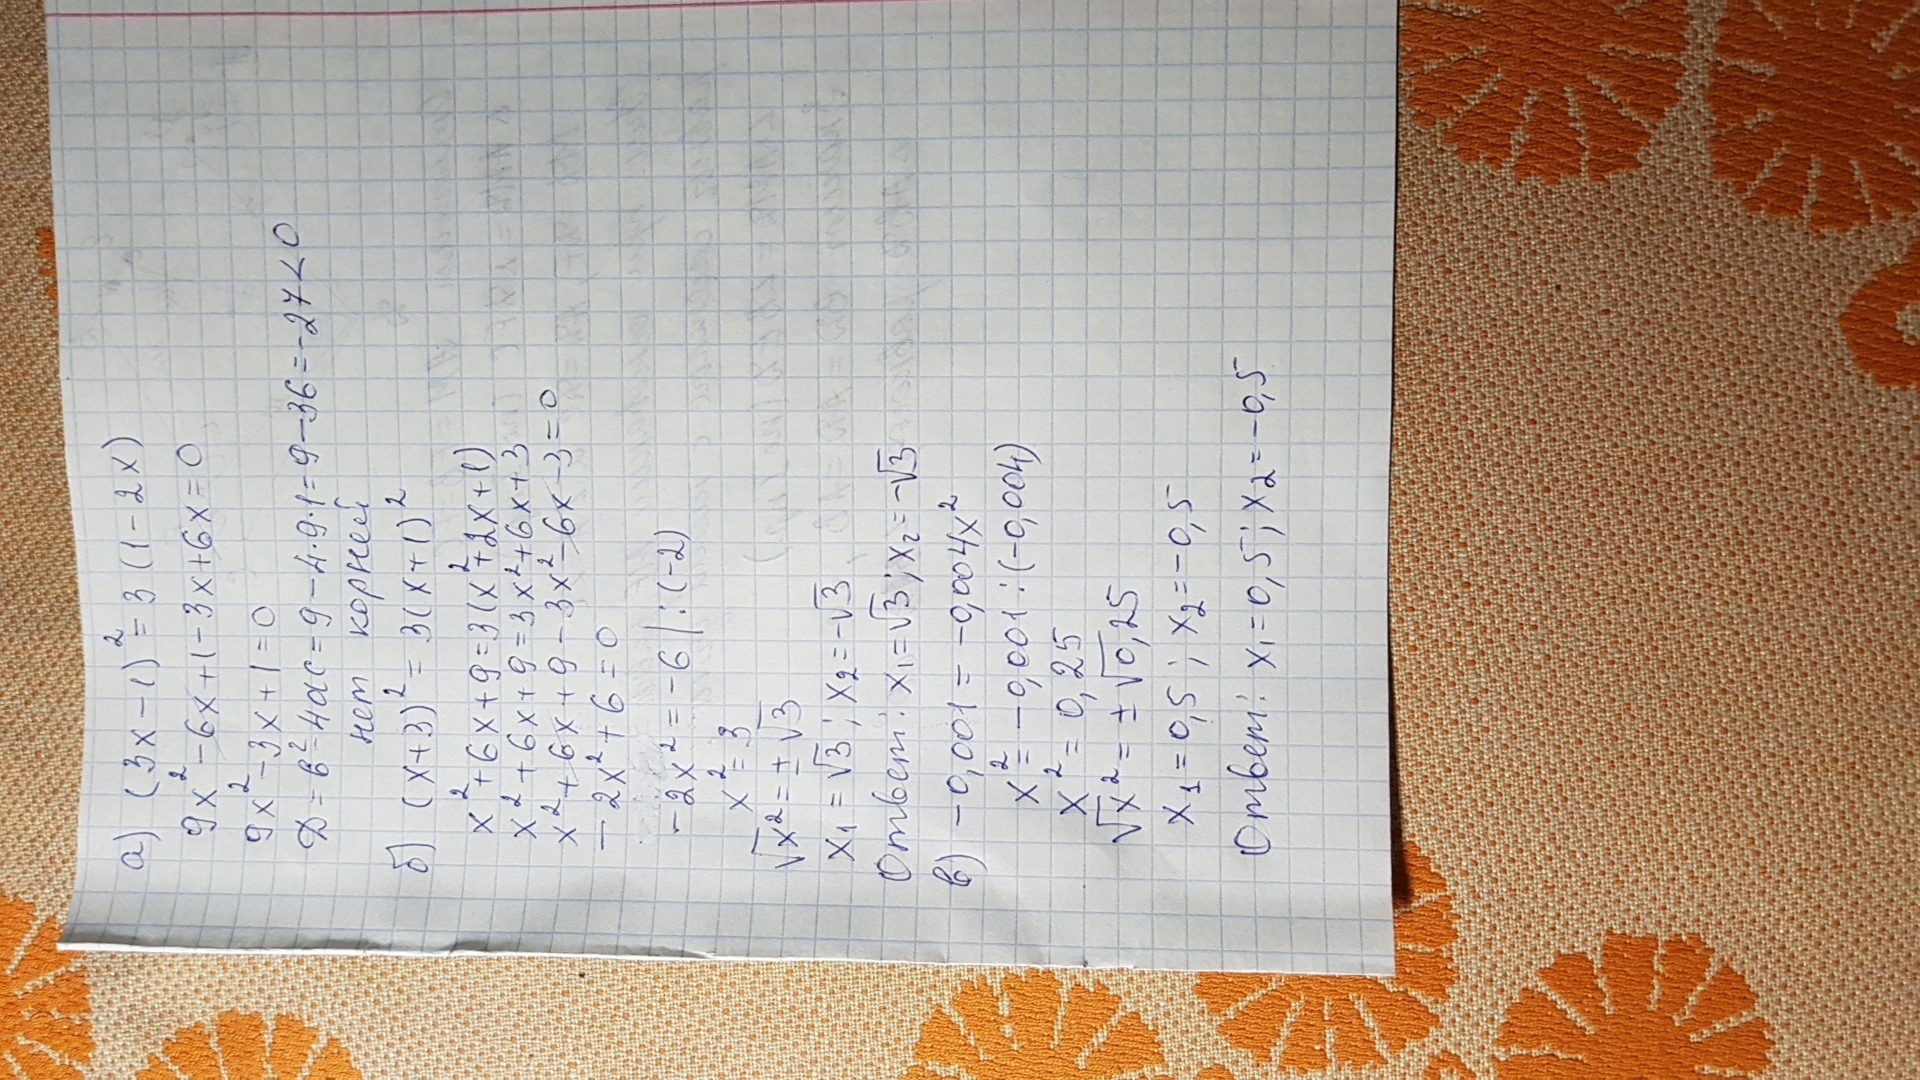 а) (3x-1)² = 3(1-2x)
9x²-6x+1-3x+6x=0
9x²-3x+1=0
D=b²-4ac=9-4·9·1=9-36=-27<0
нет корней
б) (x+3)² = 3(x+1)²
x²+6x+9=3(x²+2x+1)
x²+6x+9=3x²+6x+3
x²+6x+9-3x²-6x-3=0
-2x²+6=0
-2x²=-6 | :(-2)
x²=3
√x²=±√3
x₁=√3; x₂=-√3
Ответ: x₁=√3; x₂=-√3
в) -0,001=-0,004x²
x²=-0,001:(-0,004)
x²=0,25
√x²=±√0,25
x₁=0,5; x₂=-0,5
Ответ: x₁=0,5; x₂=-0,5